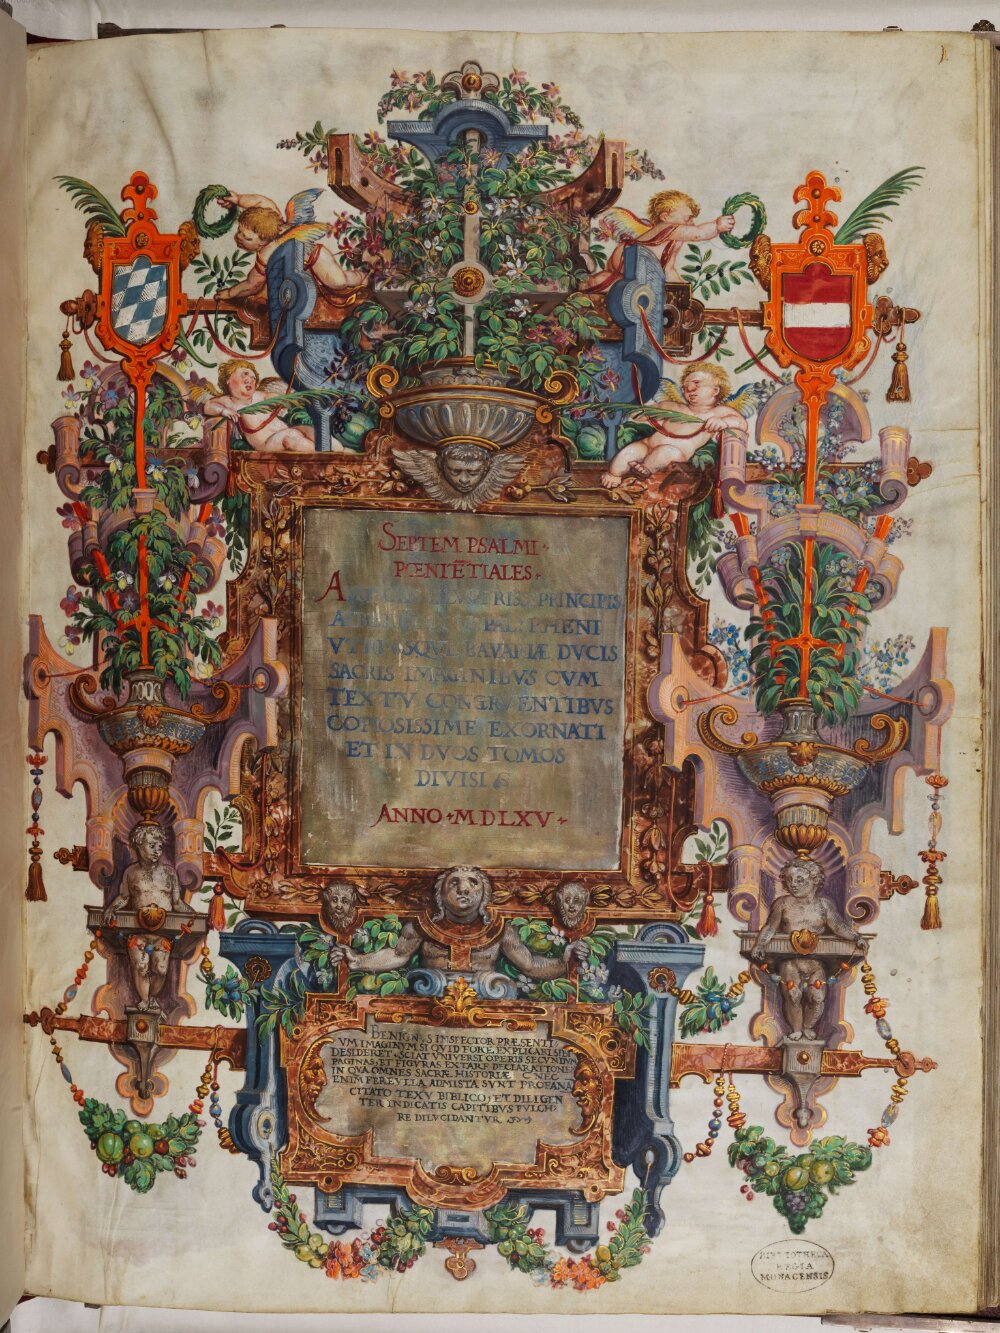 SEPTEM PSALMI
POENIE͂TIALES.
PRINCIPIS
RHENI
BAVARIÆ DVCIS
SACRIS IMAGINIBVS CVM
TEXTV CONGRVENTIBVS
COPIOSISSIME EXORNATI
ET IN DVOS TOMOS
DIVISI
ANNO · M D LXV ·
BENIGNVS INSPECTOR PRÆSENTI
VM IMAGINVM SI QVID FORE EXPLICARI SIBI
DESIDERET, SCIAT VNIVERSI OPERIS SECVNDVM
PAGINAS, ET FIGVRAS EXTARE DECLARATIONEM
IN QVA OMNES SACRÆ HISTORIÆ (NEC
ENIM FERE VLLA ADMISTA SVNT PROFANA)
CITATO TEXV BIBLICO, ET DILIGEN
TER INDICATIS CAPITIBVS PVLCH
RE DILVCIDANTVR
BIBLIOTHECA
REGIA
MONACENSIS